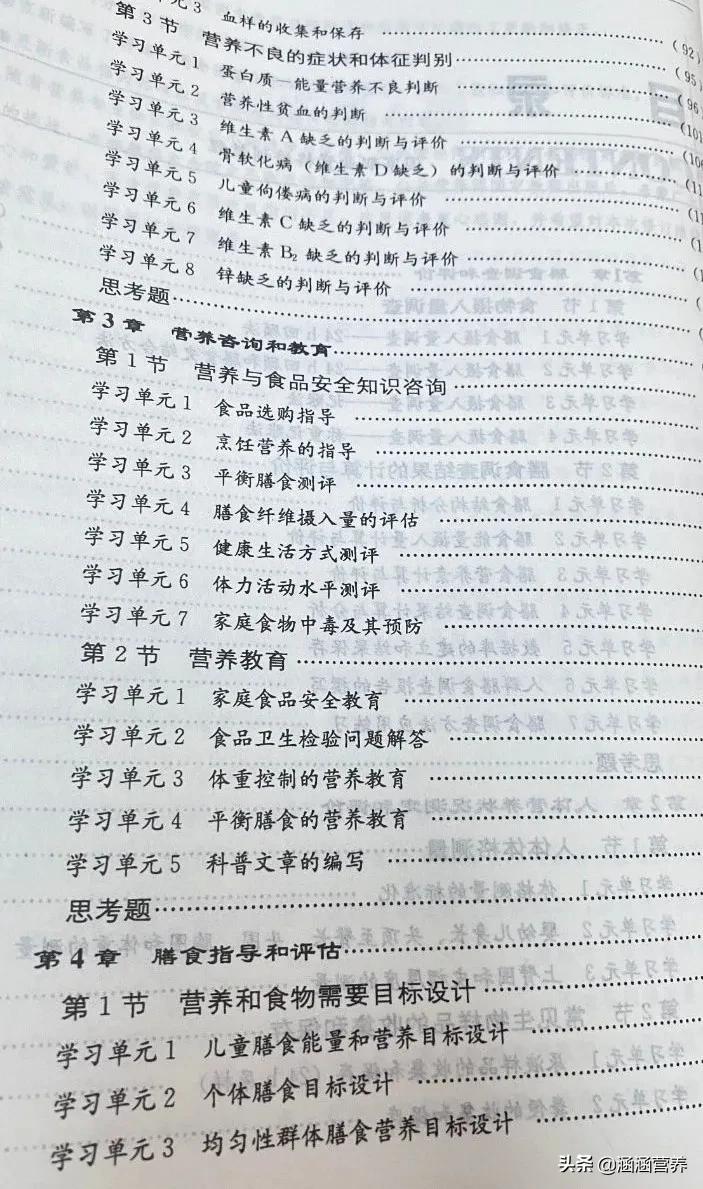 元 3 血样的收集和保存 (92)
第 3 节 营养不良的症状和体征判别 (95)
学习单元 1 蛋白质—能量营养不良判断 (96
学习单元 2 营养性贫血的判断 (101
学习单元 3 维生素 A 缺乏的判断与评价 (106
学习单元 4 骨软化病（维生素 D 缺乏）的判断与评价 (11
学习单元 5 儿童佝偻病的判断与评价 (11
学习单元 6 维生素 C 缺乏的判断与评价 (1
学习单元 7 维生素 B₂ 缺乏的判断与评价 (
学习单元 8 锌缺乏的判断与评价 (
思考题 (
第 3 章 营养咨询和教育
第 1 节 营养与食品安全知识咨询
学习单元 1 食品选购指导
学习单元 2 烹饪营养的指导
学习单元 3 平衡膳食测评
学习单元 4 膳食纤维摄入量的评估
学习单元 5 健康生活方式测评
学习单元 6 体力活动水平测评
学习单元 7 家庭食物中毒及其预防
第 2 节 营养教育
学习单元 1 家庭食品安全教育
学习单元 2 食品卫生检验问题解答
学习单元 3 体重控制的营养教育
学习单元 4 平衡膳食的营养教育
学习单元 5 科普文章的编写
思考题
第 4 章 膳食指导和评估
第 1 节 营养和食物需要目标设计
学习单元 1 儿童膳食能量和营养目标设计
学习单元 2 个体膳食目标设计
学习单元 3 均匀性群体膳食营养目标设计
头条 @涵涵营养